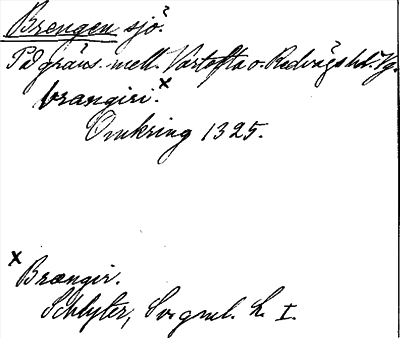 Brengen sjö?
På gräns. mell. Vartofta o. Redvägs hd. Vg.
brangiri. x
Omkring 1325.
x Brængir.
Schlyter, Sv. gml. L. I.